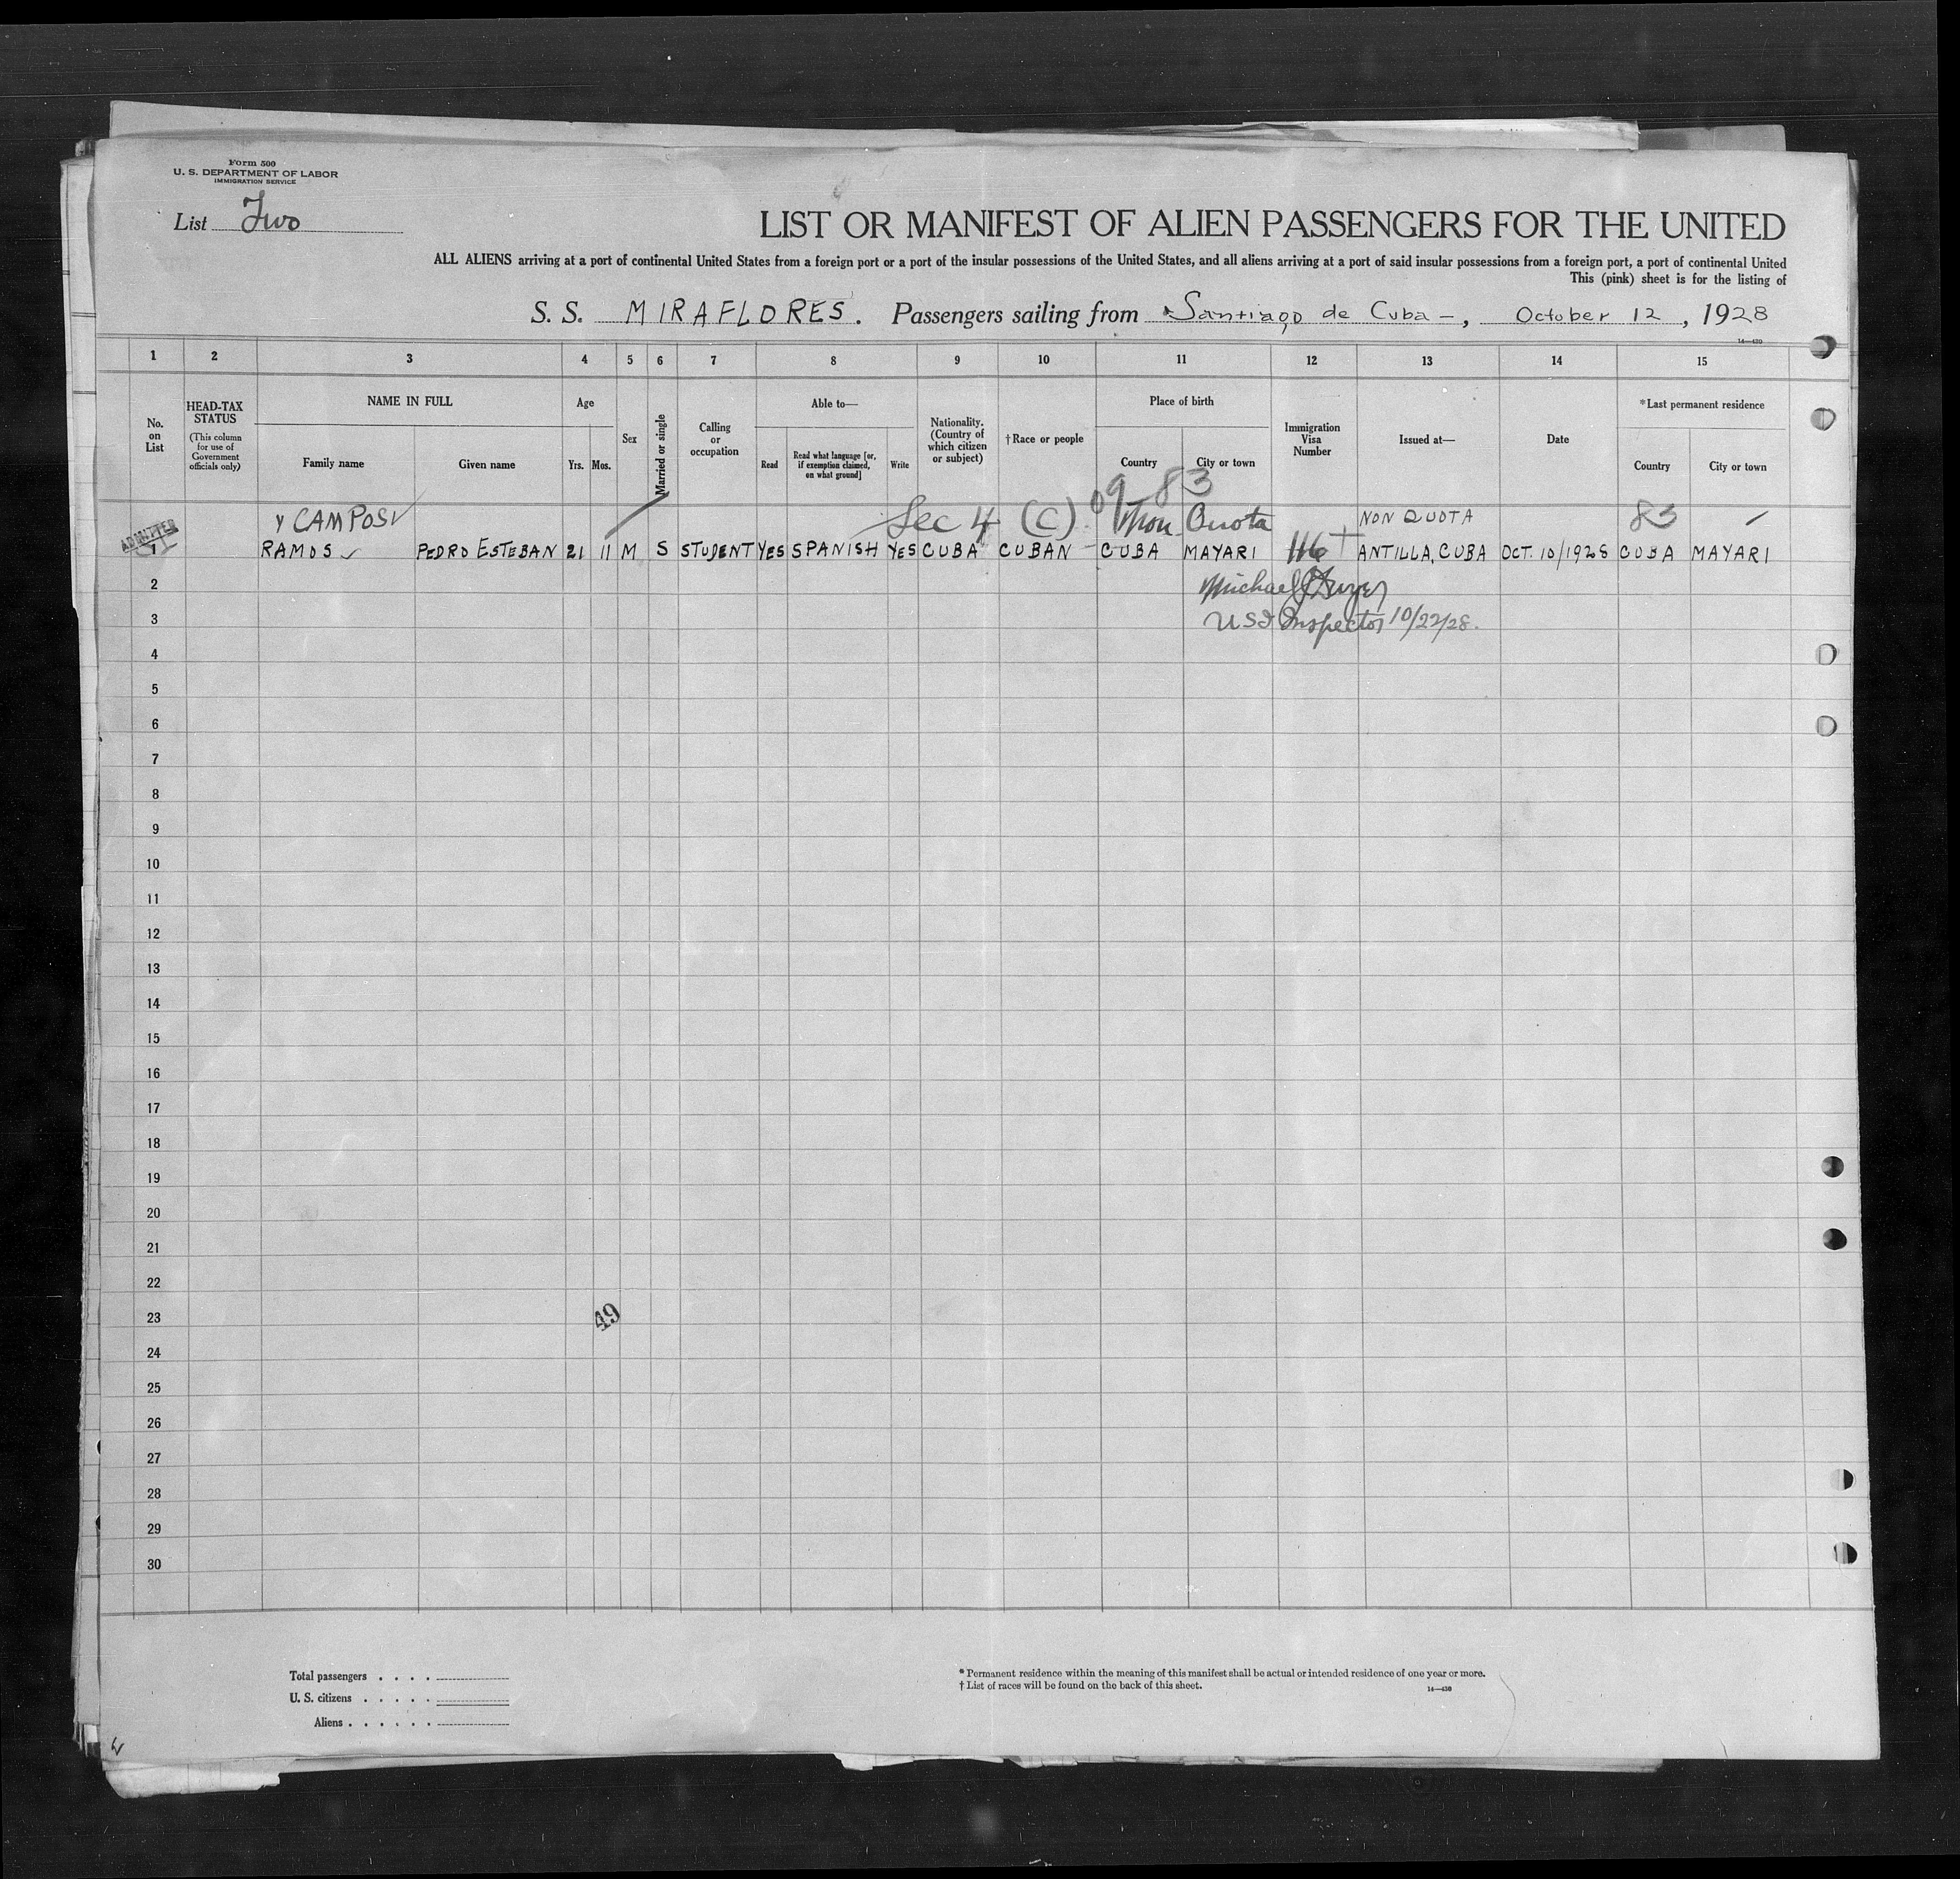 Form 500
U. S. DEPARTMENT OF LABOR
IMMIGRATION SERVICE
List Two
LIST OR MANIFEST OF ALIEN PASSENGERS FOR THE UNITED
ALL ALIENS arriving at a port of continental United States from a foreign port or a port of the insular possessions of the United States, and all aliens arriving at a port of said insular possessions from a foreign port, a port of continental United
This (pink) sheet is for the listing of
S. S. MIRAFLORES. Passengers sailing from Santiago de Cuba -, October 12, 1928
14—430
1 2 3 4 5 6 7 8 9 10 11 12 13 14 15
No. on List
HEAD-TAX STATUS (This column for use of Government officials only)
NAME IN FULL
Family name Given name
Age
Yrs. Mos.
Sex
Married or single
Calling or occupation
Able to—
Read Read what language [or, if exemption claimed, on what ground] Write
Nationality. (Country of which citizen or subject)
†Race or people
Place of birth
Country City or town
Immigration Visa Number
Issued at—
Date
*Last permanent residence
Country City or town
09 83
Y CAMPOS Sec 4 (C) Non Quota NON QUOTA 83
ADMITTED
1 RAMOS PEDRO ESTEBAN 21 11 M S STUDENT YES SPANISH YES CUBA CUBAN CUBA MAYARI 116 ANTILLA, CUBA OCT. 10/1928 CUBA MAYARI
2 Michael J Dwyer
3 USI Inspector 10/22/28.
4
5
6
7
8
9
10
11
12
13
14
15
16
17
18
19
20
21
22
23 49
24
25
26
27
28
29
30
Total passengers . . . .
U. S. citizens . . . . .
Aliens . . . . . .
* Permanent residence within the meaning of this manifest shall be actual or intended residence of one year or more.
† List of races will be found on the back of this sheet.
14—430